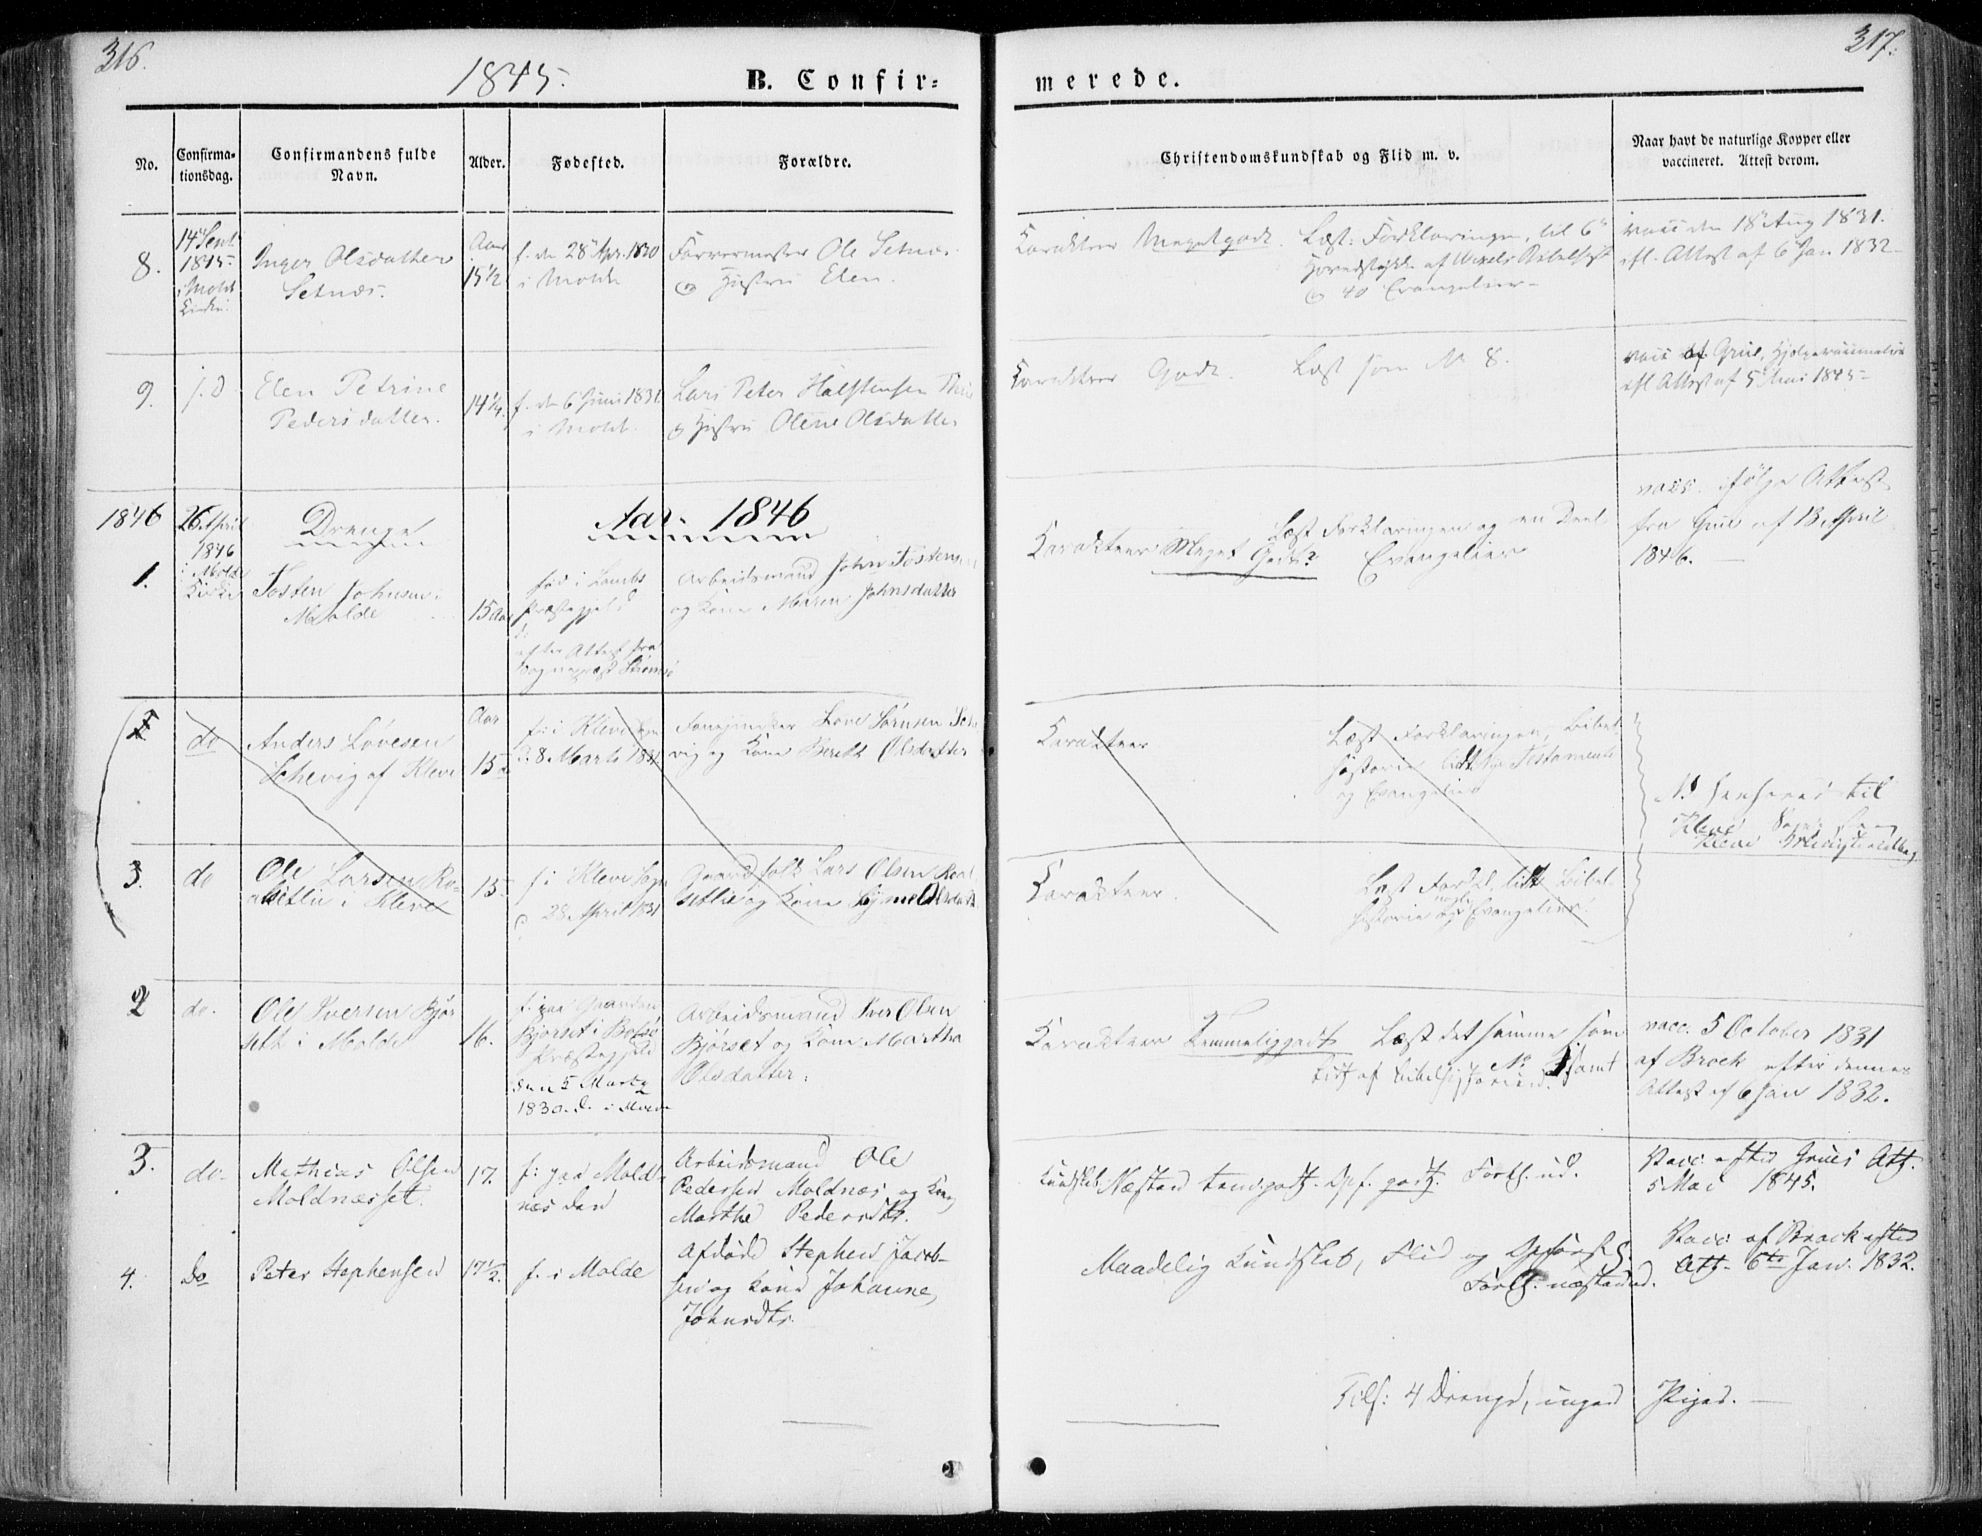 316.
317.
1845.
B. Confir=
merede.
No.
Confirma-
tionsdag.
Confirmandens fulde
Navn.
Alder.
Fødested.
Forældre.
Christendomskundskab og Flid m. v.
Naar havt de naturlige Kopper eller
vaccineret. Attest derom.
8.
14 Sept
1845
i Molde
Kirke.
Inger Olsdatter
Setnæs.
Aar
15 1/2
f. den 28 Apr. 1830
i Molde
Farvermester Ole Setnæs
og Hustru Elen.
Karakteer Meget godt.
Læst: Forklaringen, til 6te
Hovedstykke af
& 40 Evangelier
vacc den 18 Aug 1831.
efl. Attest af 6 Jan 1832
9.
j. d.
Elen Petrine
Pedersdatter.
14 1/4.
f. den 6 Juni 1831
i Molde.
Lars Peter Halstensen
& Hustru Olene Olsdatter
Karakteer Godt.
Læst som No 8.
vacc af Grue, Hjelpevaccinatør
efl Attest af 5 Mai 1845
1846
26 April
1846
i Molde
Kirke
Drenge
Aar 1846
1.
Tosten Johnsen
Molde
15 Aar
fød i Lombs
Præstegjeld
efter Attest fra
Sognepræst
Arbeidsmand John Tostensen
og Kone Maren Johnsdatter
Karakteer Meget Godt
Læst Forklaringen og en Deel
Evangelier
vacc. ifølge Attest
fra Grue af 13 April
1846.
do
Anders Lovesen
Schevig af Kleve
Aar
15
f. i Kleve Sogn
d. 8 Marts 1831
Love Sørensen Sche
vig og Kone Berith Olsdatter
Karakteer
Læst Forklaringen, Bibel
historie lidt Nye Testamente
og Evangelier
henføres til
Kleve Sogn
Kleve
3.
do
Ole Larsen Ro-
sitlie i Kleve
15
f i Kleve Sogn
d 28 April 1831
Gaardfolk Lars Olsen
og Kone Olsdatter
Karakteer.
Læst Forkl. lidt Bibel
historie og Evangelier.
2
do.
Ole Iversen Bjør
seth i Molde
16.
f. paa Gaarden
Bjørset i Bolsø
Præstegjeld
den 5 Marts
1830.
Arbeidsmand Iver Olsen
Bjørset og Kone Martha
Olsdatter.
Karakteer Temmeliggodt
Læst det samme som
No 1 samt
lidt af Bibelhistorien.
vacc. 5 October 1831
af Brock efter dennes
Attest af 6 Jan 1832.
3.
do.
Mathias Olsen
Moldnæsset.
17.
f: paa Mold-
næsset
Arbeidsmand Ole
Pedersen Moldnæs og Kone
Marthe Pedersdtr.
Kundskab Næsten temgodt. Opf. godt. Forth. ud.
Vacc. efter Grues Att.
5 Mai 1845.
4.
Do
Peter Stephensen
17 1/2.
f. i Molde
Afdøde Stephen Jacob-
sen og Kone Johanne
Johnsdtr.
Maadelig Kundskab, Flid og Opførsel.
Forth. næsten ud.
Vacc: af Brock efter
Att. 6te Jan. 1832.
Tils: 4 Drenge, ingen Piger.